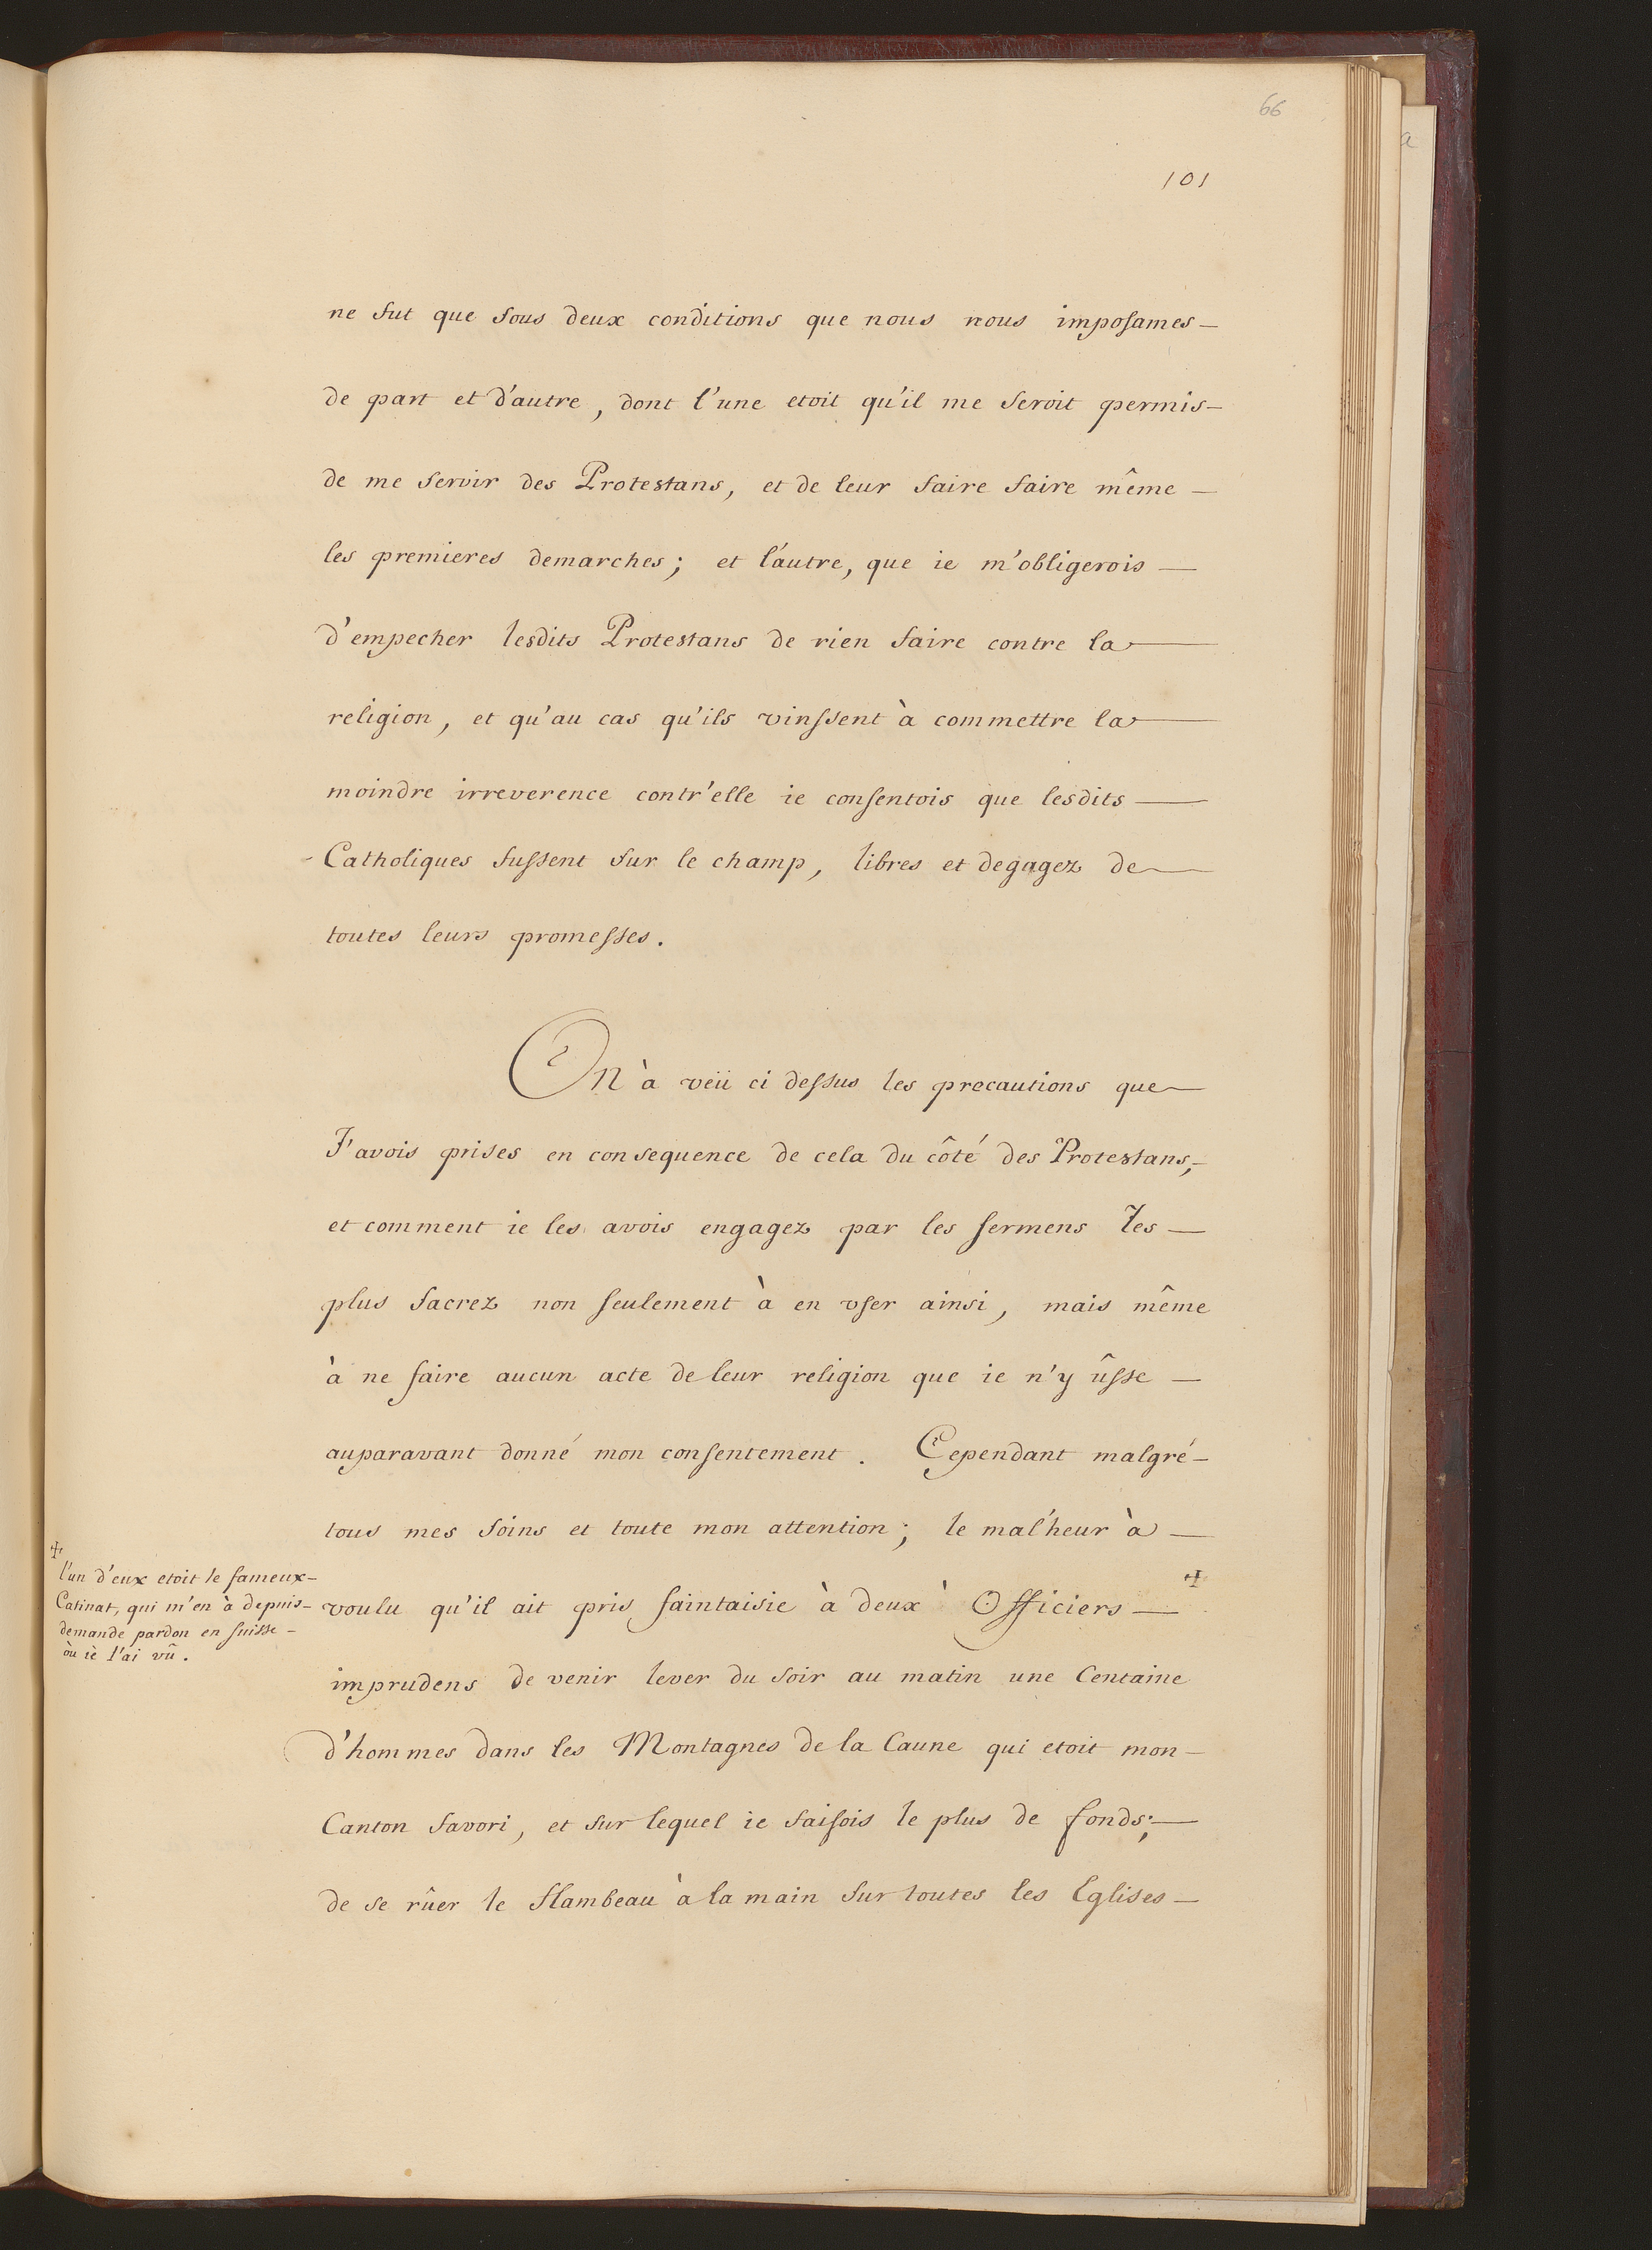 66
101
ne fut que sous deux conditions que nous nous imposames
de part et d'autre, dont l'une etoit qu'il me seroit permis
de me servir des Protestans, et de leur faire faire même
les premieres demarches; et l'autre, que ie m'obligerois
d'empecher lesdits Protestans de rien faire contre la
religion, et qu'au cas qu'ils vinssent à commettre la
moindre irreverence contr'elle ie consentois que lesdits
Catholiques fussent sur le champ, libres et degagez de
toutes leurs promesses.
On à veü ci dessus les precautions que
J'avois prises en consequence de cela du côté des Protestans,
et comment ie les avois engagez par les sermens les
plus sacrez non seulement à en vser ainsi, mais même
à ne faire aucun acte de leur religion que ie n'y ûsse
auparavant donné mon consentement. Cependant malgré
tous mes soins et toute mon attention; le mal'heur à
voulu qu'il ait pris faintaisie à deux Officiers ☩
imprudens de venir lever du soir au matin une Centaine
d'hommes dans les Montagnes de la Caune qui etoit mon
Canton favori, et sur lequel ie faisois le plus de fonds;
de se rûer le flambeau à la main sur toutes les Eglises
☩
l'un d'eux etoit le fameux
Catinat, qui m'en à depuis
demande pardon en suisse
où iè l'ai vû.